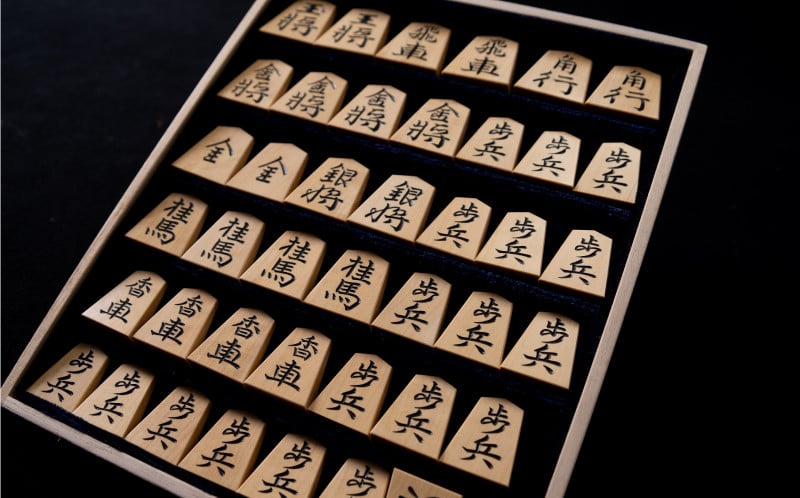 玉將 王將 飛車 飛車 角行 角行
金將 金將 金將 金將 歩兵 歩兵 歩兵
全 全 銀将 銀将 歩兵 歩兵 歩兵
桂馬 桂馬 桂馬 桂馬 歩兵 歩兵 歩兵
香車 香車 香車 香車 歩兵 歩兵 歩兵
歩兵 歩兵 歩兵 歩兵 歩兵 歩兵